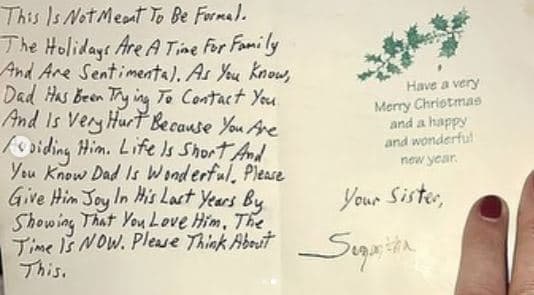 This Is Not Meant To Be Formal.
The Holidays Are A Time For Family
And Are Sentimental. As You Know,
Dad Has Been Trying To Contact You
And Is Very Hurt Because You Are
Avoiding Him. Life Is Short And
You Know Dad Is Wonderful. Please
Give Him Joy In His Last Years By
Showing That You Love Him. The
Time Is NOW. Please Think About
This.
Have a very
Merry Christmas
and a happy
and wonderful
new year.
Your Sister,
Samantha